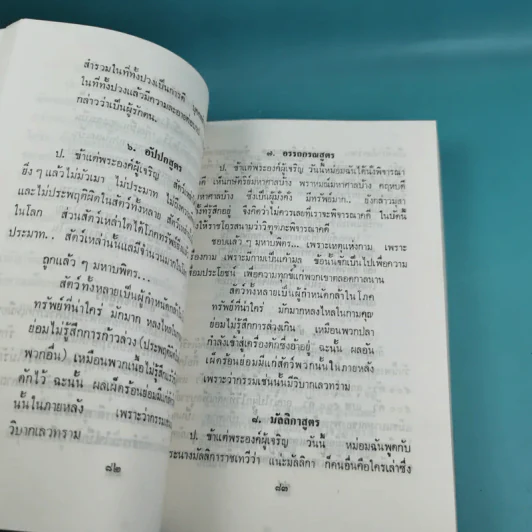 สำรวมในที่ทั้งปวงเป็นการดี
ในที่ทั้งปวงแล้วมีความละอาย
กล่าวว่าเป็นผู้รักตน.
๖. อัปปกสูตร
ป. ข้าแต่พระองค์ผู้เจริญ สัตว์
ยิ่ง ๆ แล้วไม่มัวเมา ไม่ประมาท
และไม่ประพฤติผิดในสัตว์ทั้งหลาย
ในโลก ส่วนสัตว์เหล่าใดได้โภคทรัพย์
ประมาท.. สัตว์เหล่านั้นแลมีจำนวนมาก
ถูกแล้ว ๆ มหาบพิตร...
สัตว์ทั้งหลายเป็นผู้กำหนัด
ทรัพย์ที่น่าใคร่ มักมาก หลงใหล
ย่อมไม่รู้สึกการก้าวล่วง (ประพฤติผิด
พวกอื่น) เหมือนพวกเนื้อไม่รู้สึก
ดักไว้ ฉะนั้น ผลเผ็ดร้อนย่อมมี
นั้นในภายหลัง เพราะว่ากรรม
วิบากเลวทราม
๘๒
๗. อรรถกรณสูตร
ป. ข้าแต่พระองค์ผู้เจริญ วันนี้หม่อมฉันได้นั่งพิจารณา
คดี เห็นกษัตริย์มหาศาลบ้าง พราหมณ์มหาศาลบ้าง คฤหบดี
ซึ่งเป็นผู้มั่งคั่ง มีทรัพย์มาก..
ที่รู้สึกอยู่ จึงคิดว่าไม่ควรเลยที่เราจะพิจารณาคดี ในบัดนี้
ให้ราชโอรสนามว่าวิฑูฑภะพิจารณาคดี
ชอบแล้ว ๆ มหาบพิตร... เพราะเหตุแห่งกาม เพราะ
เพราะมีกามเป็นเค้ามูล ข้อนั้นจักเป็นไปเพื่อความ
เสื่อมประโยชน์ เพื่อความทุกข์แก่พวกเขาตลอดกาลนาน
สัตว์ทั้งหลายเป็นผู้กำหนัดกล้าใน โภค
ทรัพย์ที่น่าใคร่ มักมากหลงใหลในกามคุณ
ย่อมไม่รู้สึกการล่วงเกิน เหมือนปลา
กำลังเข้าสู่เครื่องดักซึ่งอ้าอยู่ ฉะนั้น ผลอัน
เผ็ดร้อนย่อมมีแก่สัตว์พวกนั้นในภายหลัง
เพราะว่ากรรมเช่นนั้นมีวิบากเลวทราม
๘. มัลลิกาสูตร
ป. ข้าแต่พระองค์ผู้เจริญ วันนี้ หม่อมฉันพูดกับ
พระนางมัลลิการาชเทวีว่า แน่ะมัลลิกา ก็คนอื่นคือใครเล่าซึ่ง
๘๓